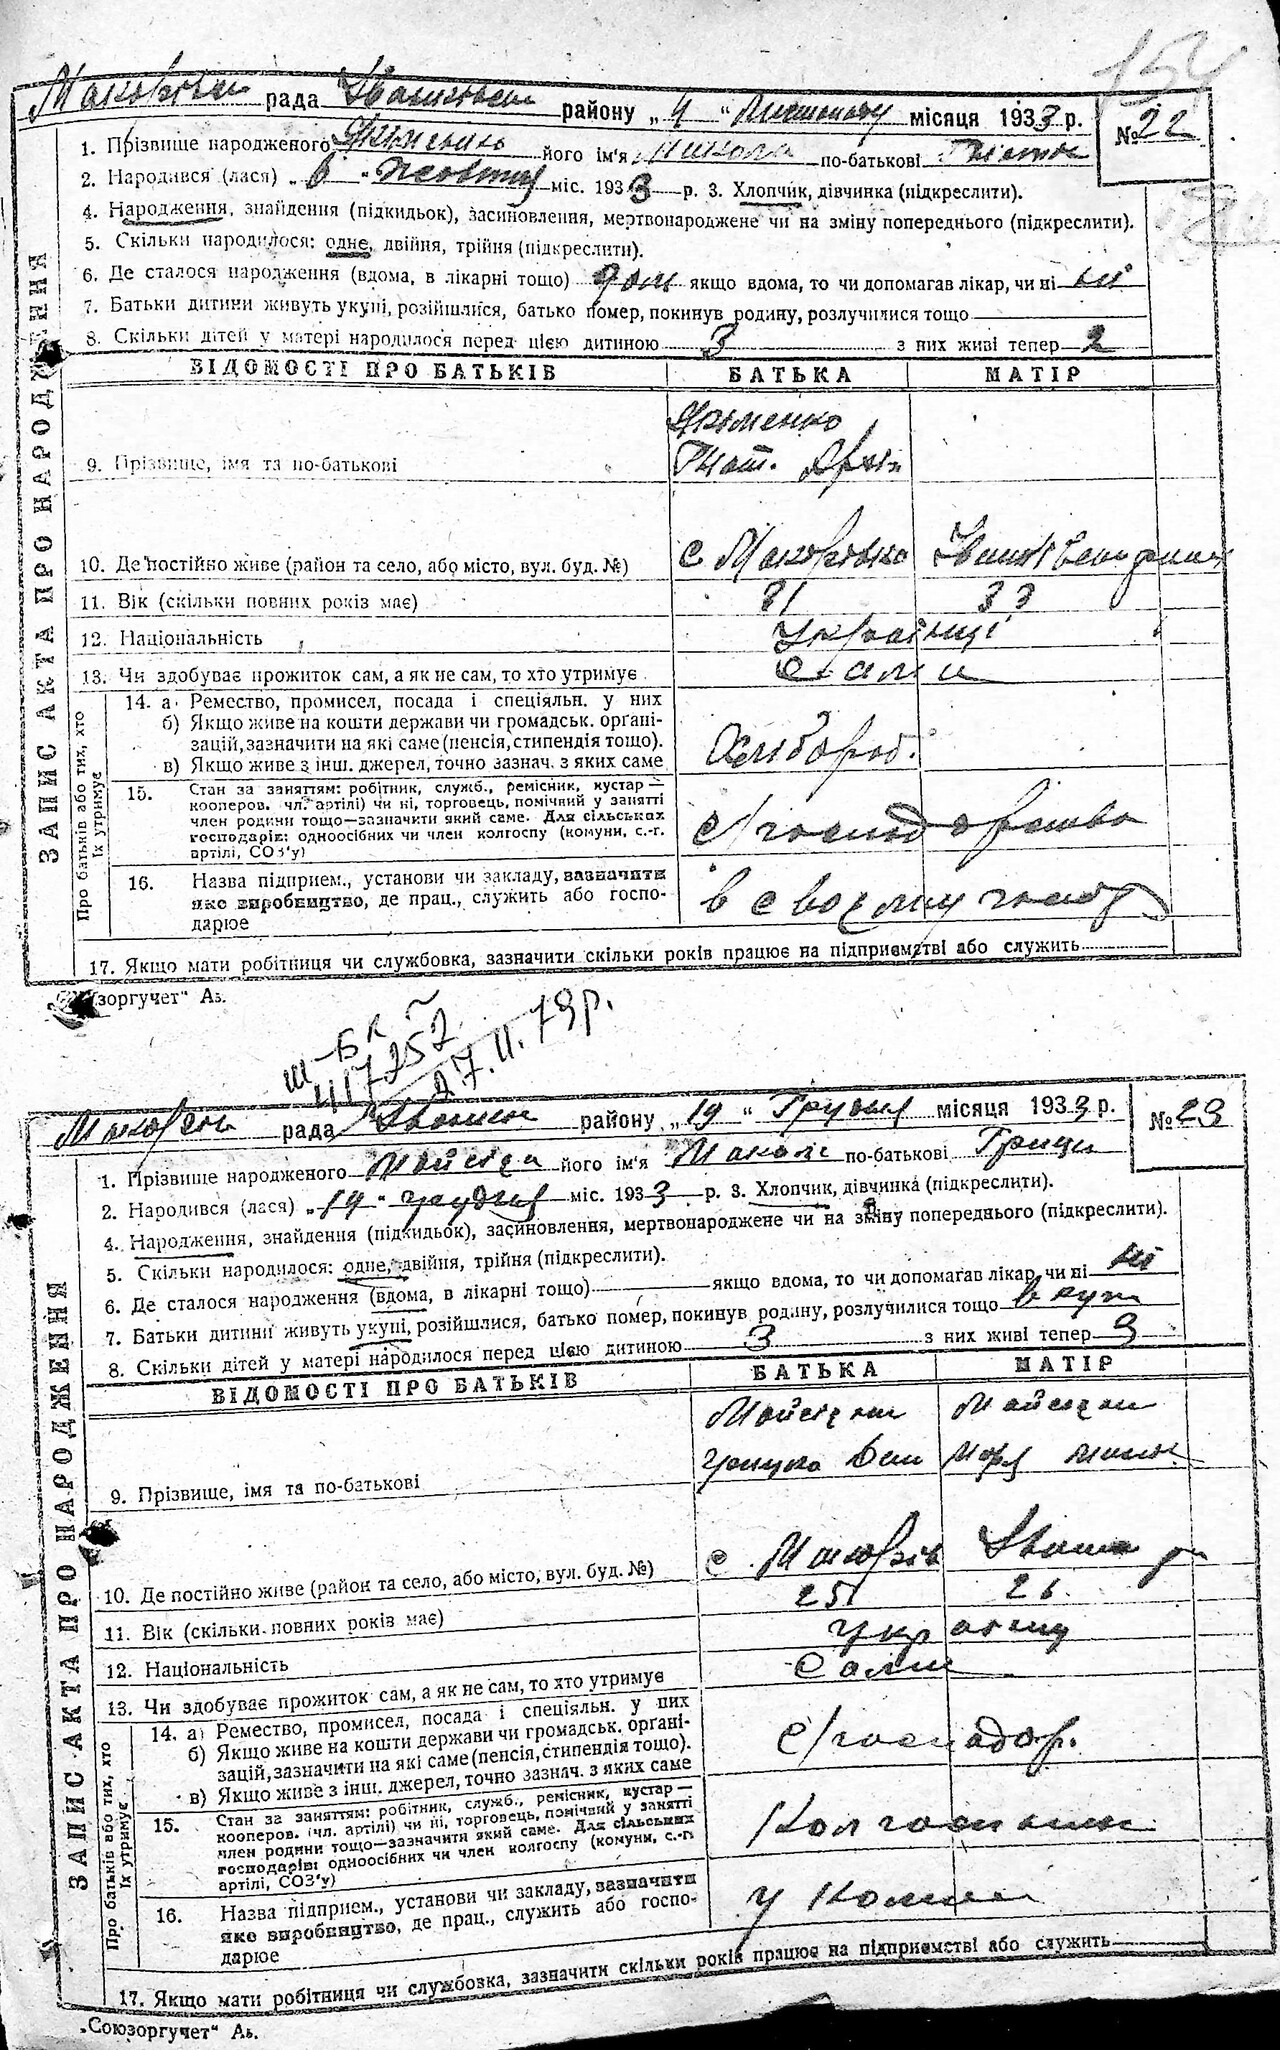 154
рада району „4 " місяця 1933 р. № 22
1. Прізвище народженого Якименко його ім'я Микола по-батькові
2. Народився (лася) „6 " Жовтня міс. 1933 р. 3. Хлопчик, дівчинка (підкреслити).
4. Народження, знайдення (підкидьок), засиновлення, мертвонароджене чи на зміну попереднього (підкреслити).
5. Скільки народилося: одне, двійня, трійня (підкреслити).
6. Де сталося народження (вдома, в лікарні тощо) дом якщо вдома, то чи допомагав лікар, чи ні ні
7. Батьки дитини живуть укупі, розійшлися, батько помер, покинув родину, розлучилися тощо
8. Скільки дітей у матері народилося перед цією дитиною 3 з них живі тепер 2
ЗАПИС АКТА ПРО НАРОДЖЕННЯ
ВІДОМОСТІ ПРО БАТЬКІВ БАТЬКА МАТІР
Якименко
9. Прізвище, імя та по-батькові
10. Де постійно живе (район та село, або місто, вул. буд. №) с Маковівка
11. Вік (скільки повних років має) 31 33
12. Національність Українці
13. Чи здобуває прожиток сам, а як не сам, то хто утримує Сами
Про батьків або тих, хто їх утримує
14. а) Ремество, промисел, посада і спеціяльн. у них
б) Якщо живе на кошти держави чи громадськ. органі-
зацій, зазначити на які саме (пенсія, стипендія тощо).
в) Якщо живе з інш. джерел, точно зазнач. з яких саме
Хлібороб.
15. Стан за заняттям: робітник, служб., ремісник, кустар —
кооперов. чл. артілі) чи ні, торговець, помічний у занятті
член родини тощо—зазначити який саме. Для сільських
господарів: одноосібних чи член колгоспу (комуни, с.-г.
артілі, СОЗ'у)
с/господарство
16. Назва підприєм., установи чи закладу, зазначити
яке виробництво, де прац., служить або госпо-
дарює
в своєму госпд
17. Якщо мати робітниця чи службовка, зазначити скільки років працює на підприємстві або служить
зоргучет" Аз.
ш-БК
417252
27.II.79р.
рада району „19 " Грудня місяця 1933 р. № 23
1. Прізвище народженого його ім'я по-батькові Гриць
2. Народився (лася) „19 " грудня міс. 1933 р. 3. Хлопчик, дівчинка (підкреслити).
4. Народження, знайдення (підкидьок), засиновлення, мертвонароджене чи на зміну попереднього (підкреслити).
5. Скільки народилося: одне, двійня, трійня (підкреслити).
6. Де сталося народження (вдома, в лікарні тощо) якщо вдома, то чи допомагав лікар, чи ні ні
7. Батьки дитини живуть укупі, розійшлися, батько помер, покинув родину, розлучилися тощо вкупі
8. Скільки дітей у матері народилося перед цією дитиною 3 з них живі тепер 3
ЗАПИС АКТА ПРО НАРОДЖЕННЯ
ВІДОМОСТІ ПРО БАТЬКІВ БАТЬКА МАТІР
9. Прізвище, імя та по-батькові
10. Де постійно живе (район та село, або місто, вул. буд. №) с.
11. Вік (скільки повних років має) 25 26
12. Національність
13. Чи здобуває прожиток сам, а як не сам, то хто утримує Сами
Про батьків або тих, хто їх утримує
14. а) Ремество, промисел, посада і спеціяльн. у них
б) Якщо живе на кошти держави чи громадськ. органі-
зацій, зазначити на які саме (пенсія, стипендія тощо).
в) Якщо живе з інш. джерел, точно зазнач. з яких саме
с/господар.
15. Стан за заняттям: робітник, служб., ремісник, кустар —
кооперов. (чл. артілі) чи ні, торговець, помічний у занятті
член родини тощо—зазначити який саме. Для сільських
господарів: одноосібних чи член колгоспу (комуни, с.-г.
артілі, СОЗ'у)
Колгоспник
16. Назва підприєм., установи чи закладу, зазначити
яке виробництво, де прац., служить або госпо-
дарює
у
17. Якщо мати робітниця чи службовка, зазначити скільки років працює на підприємстві або служить
„Союзоргучет" Аь.